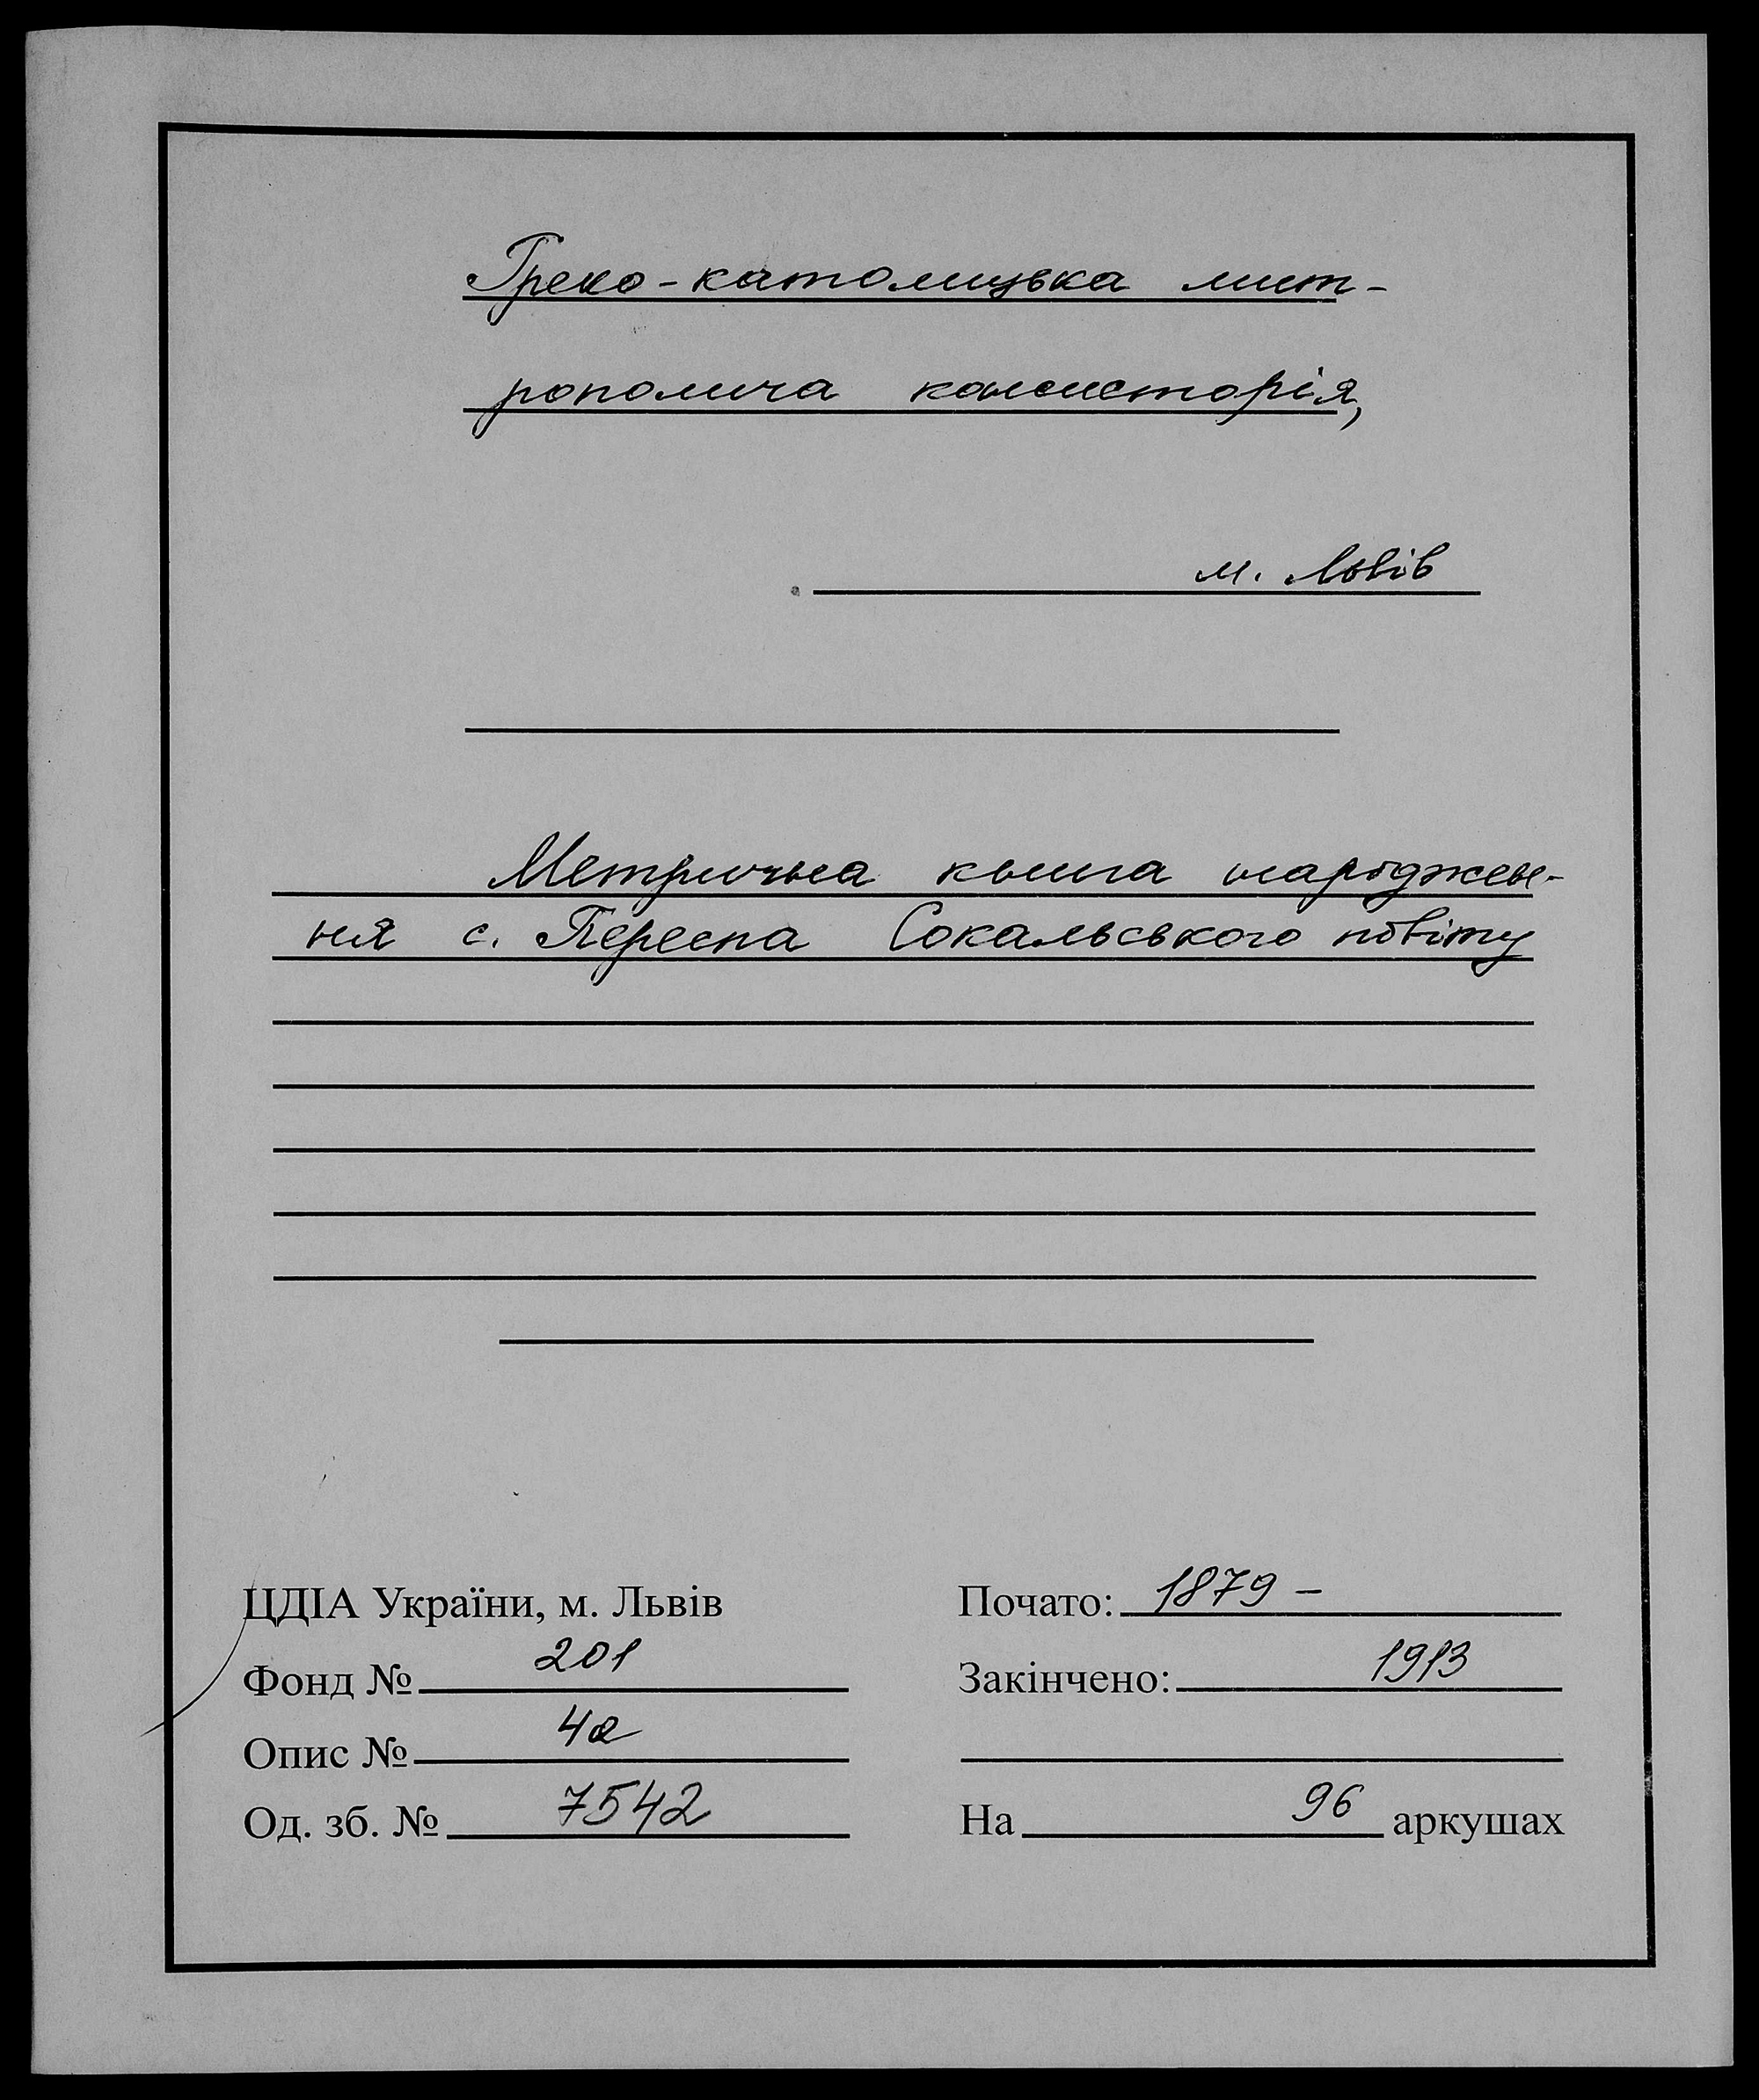 Греко-католицька мит-
рополича консисторія,
м. Львів
Метрична книга народжен-
ня с. Переспа Сокальського повіту
ЦДІА України, м. Львів
Фонд № 201
Опис № 4а
Од. зб. № 7542
Почато: 1879 –
Закінчено: 1913
На 96 аркушах